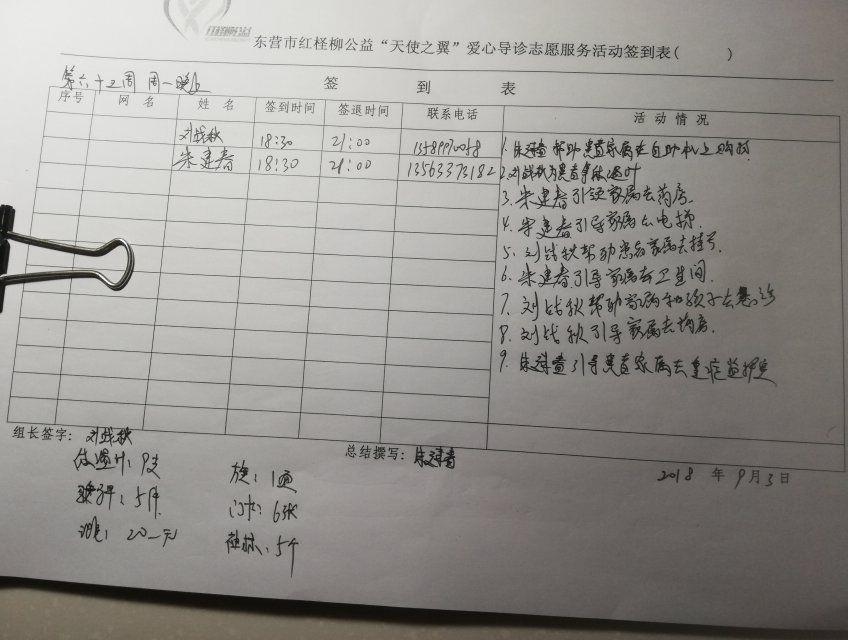 东营市红柽柳公益“天使之翼”爱心导诊志愿服务活动签到表(    )
签 到 表
第六十三周 周一晚上
序号 网 名 姓 名 签到时间 签退时间 联系电话 活 动 情 况
刘战秋 18:30 21:00
朱建春 18:30 21:00 13563373182
1. 朱建春帮助患者家属在自助机上购物
2. 刘战秋为患者拿体温计
3. 朱建春引领家属去药房.
4. 朱建春引导家属去电梯.
5. 刘战秋帮助患者家属去挂号.
6. 朱建春引导家属去卫生间.
7. 刘战秋帮助家属和孩子去急诊
8. 刘战秋引导家属去药房.
9. 朱建春引导患者家属去重症监护室
组长签字: 刘战秋
总结撰写: 朱建春
2018 年 9月3日
体温计: 9支
旗: 1面
5件
6张
5个